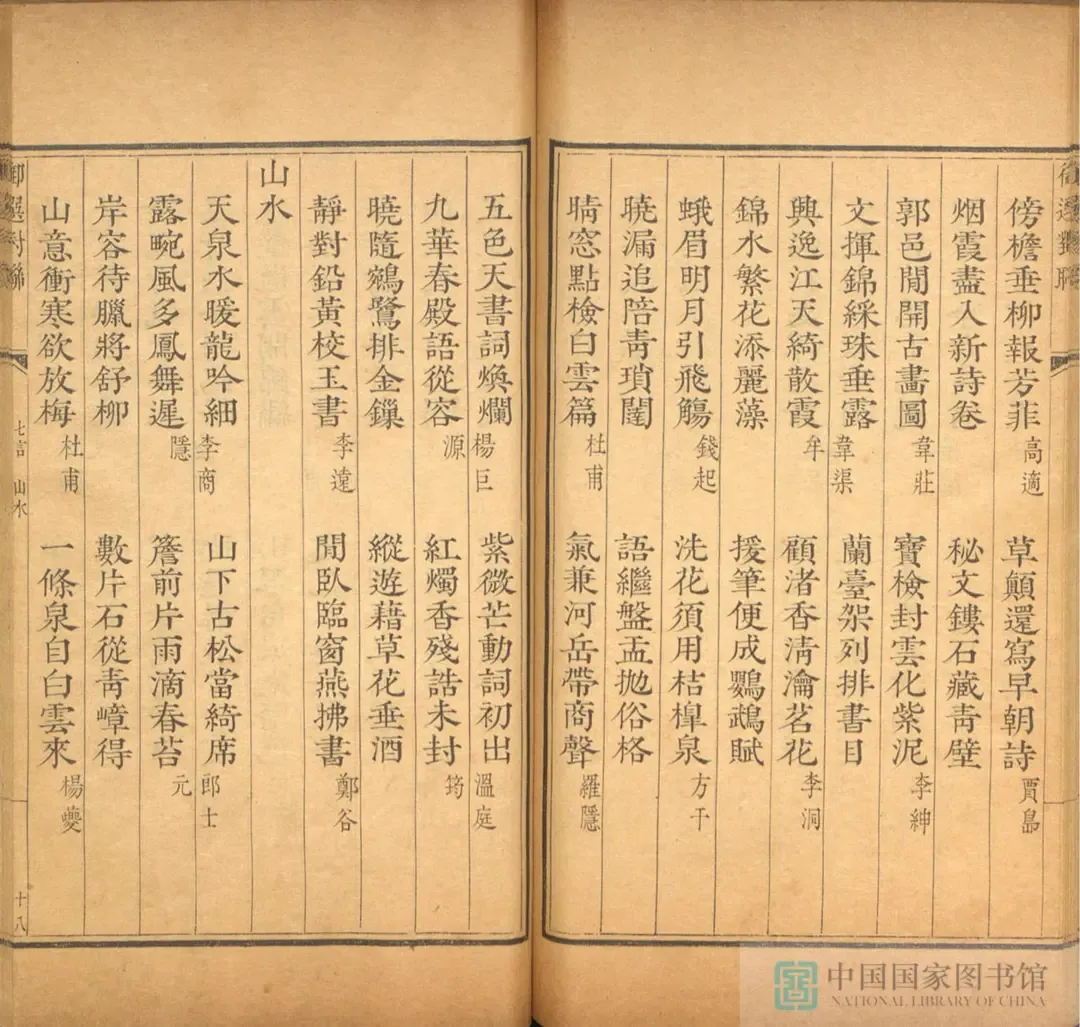 傍檐垂柳報芳菲 高適 草顛還寫早朝詩 賈島
烟霞盡入新詩卷 秘文鏤石藏青壁
郭邑閒開古畵圖 韋莊 寶檢封雲化紫泥 李紳
文揮錦綵珠垂露 蘭臺架列排書目
興逸江天綺散霞 韋渠牟 顧渚香淸瀹茗花 李洞
錦水繁花添麗藻 援筆便成鸚鵡賦
蛾眉明月引飛觴 錢起 洗花須用桔橰泉 方干
曉漏追陪靑瑣闥 語繼盤盂抛俗格
晴窓點檢白雲篇 杜甫 氣兼河岳帶商聲 羅隱
五色天書詞煥爛 楊巨源 紫微芒動詞初出 溫庭筠
九華春殿語從容 紅燭香殘誥未封
曉隨鵷鷺排金鏁 縱遊藉草花垂酒
靜對鉛黃校玉書 李遠 閒臥臨窗燕拂書 鄭谷
山水
天泉水暖龍吟細 李商隱 山下古松當綺席 郎士元
露畹風多鳳舞遲 簷前片雨滴春苔
岸容待臘將舒柳 數片石從靑嶂得
山意衝寒欲放梅 杜甫 一條泉自白雲來 楊夔
御選對聯
七言 山水
十八
中国国家图书馆
NATIONAL LIBRARY OF CHINA